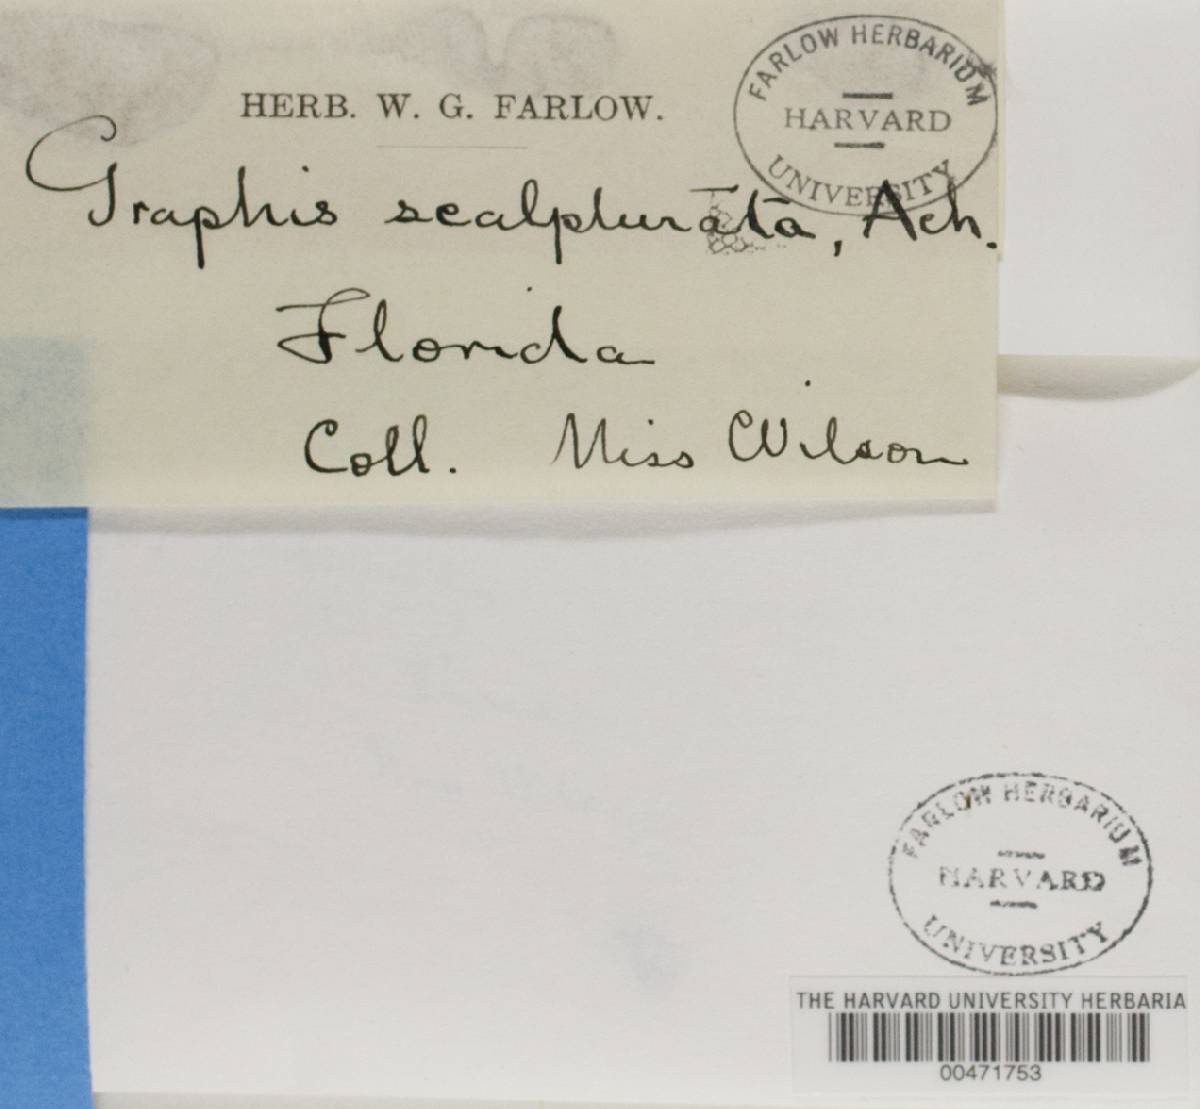 HERB. W. G. FARLOW.
FARLOW HERBARIUM
HARVARD
UNIVERSITY
Graphis scalpturata, Ach.
Florida
Coll. Miss Wilson
FARLOW HERBARIUM
HARVARD
UNIVERSITY
THE HARVARD UNIVERSITY HERBARIA
00471753